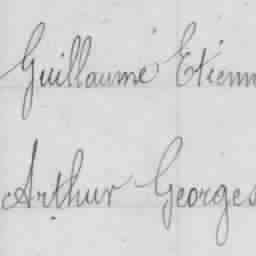 Guillaume Etienn
Arthur Georges